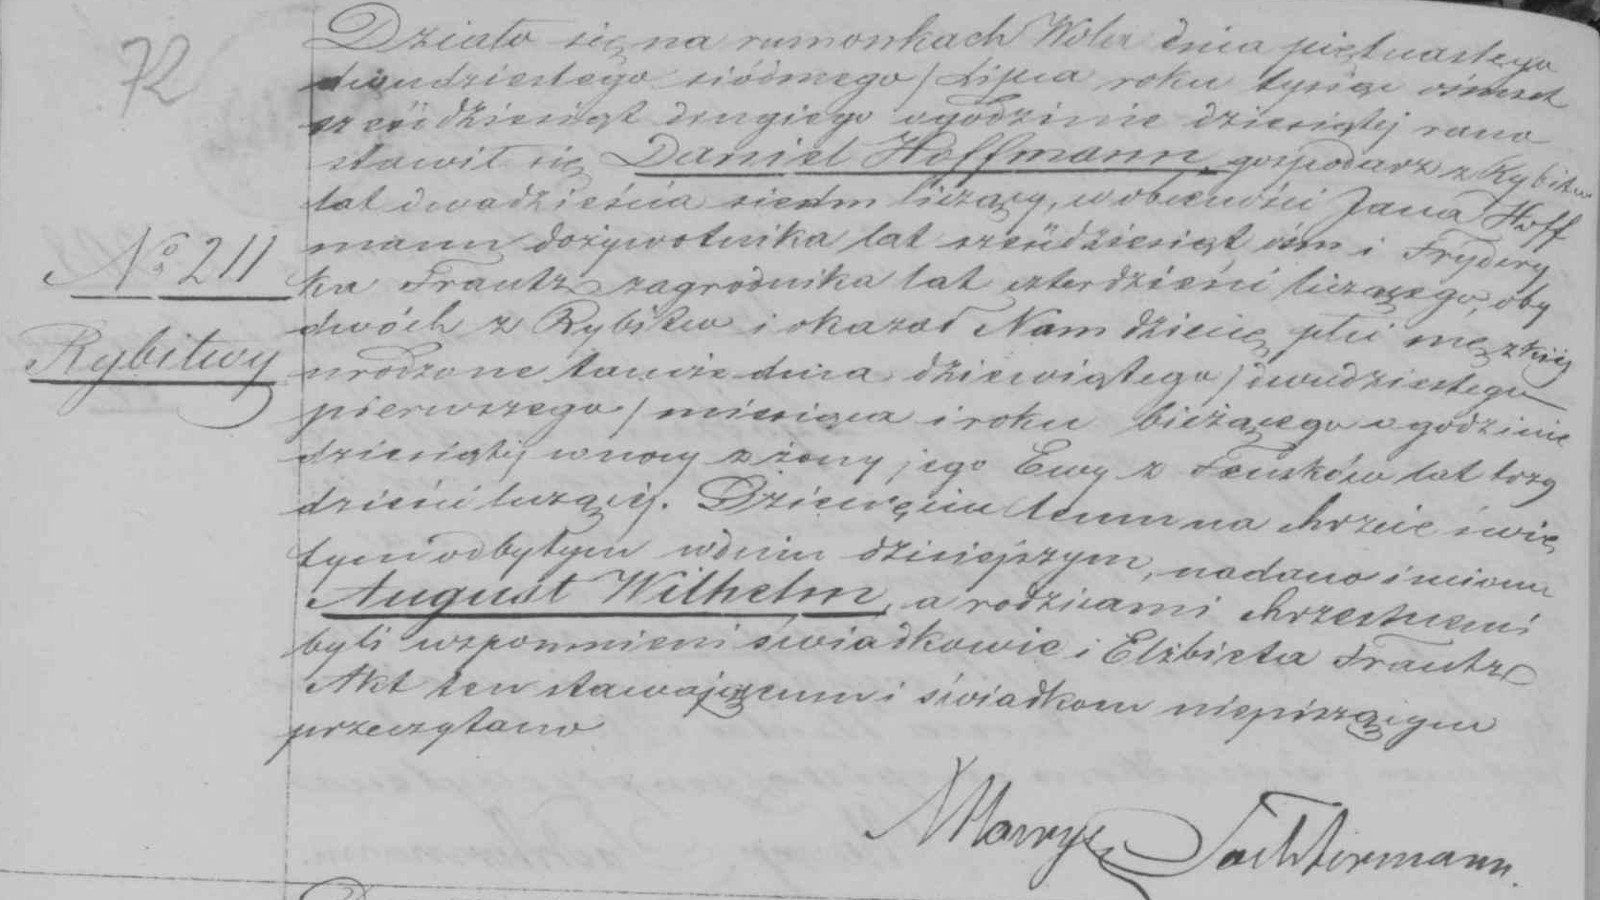 72
Działo się na rumonkach Wola dnia piętnastego
dwudziestego siódmego / Lipca roku tysiąc ośmset
sześdziesiąt drugiego o godzinie dziesiątej rano
stawił się Daniel Hoffmann, gospodarz z Rybitw
lat dwadzieścia siedm liczący, w obecności Jana Hoff
mann dożywotnika lat sześdziesiąt ośm i Frydery
ka Frantz zagrodnika lat czterdzieści liczącego, oby
dwóch z Rybitw i okazał Nam dziecię płci męzkiej
urodzone tamże dnia dziewiątego / dwudziestego
pierwszego / miesiąca i roku bieżącego o godzinie
dziesiątej w nocy z żony jego Ewy z lat trzy
dzieści liczącéj. Dziecięciu temu na chrzcie świę
tym odbytym w dniu dzisiejszym, nadano imiona
August Wilhelm, a rodzicami chrzestnemi
byli wspomnieni świadkowie i Elżbieta Frantz
Akt ten stawającemu i świadkom niepiszącym
przeczytano
No 211
Rybitwy